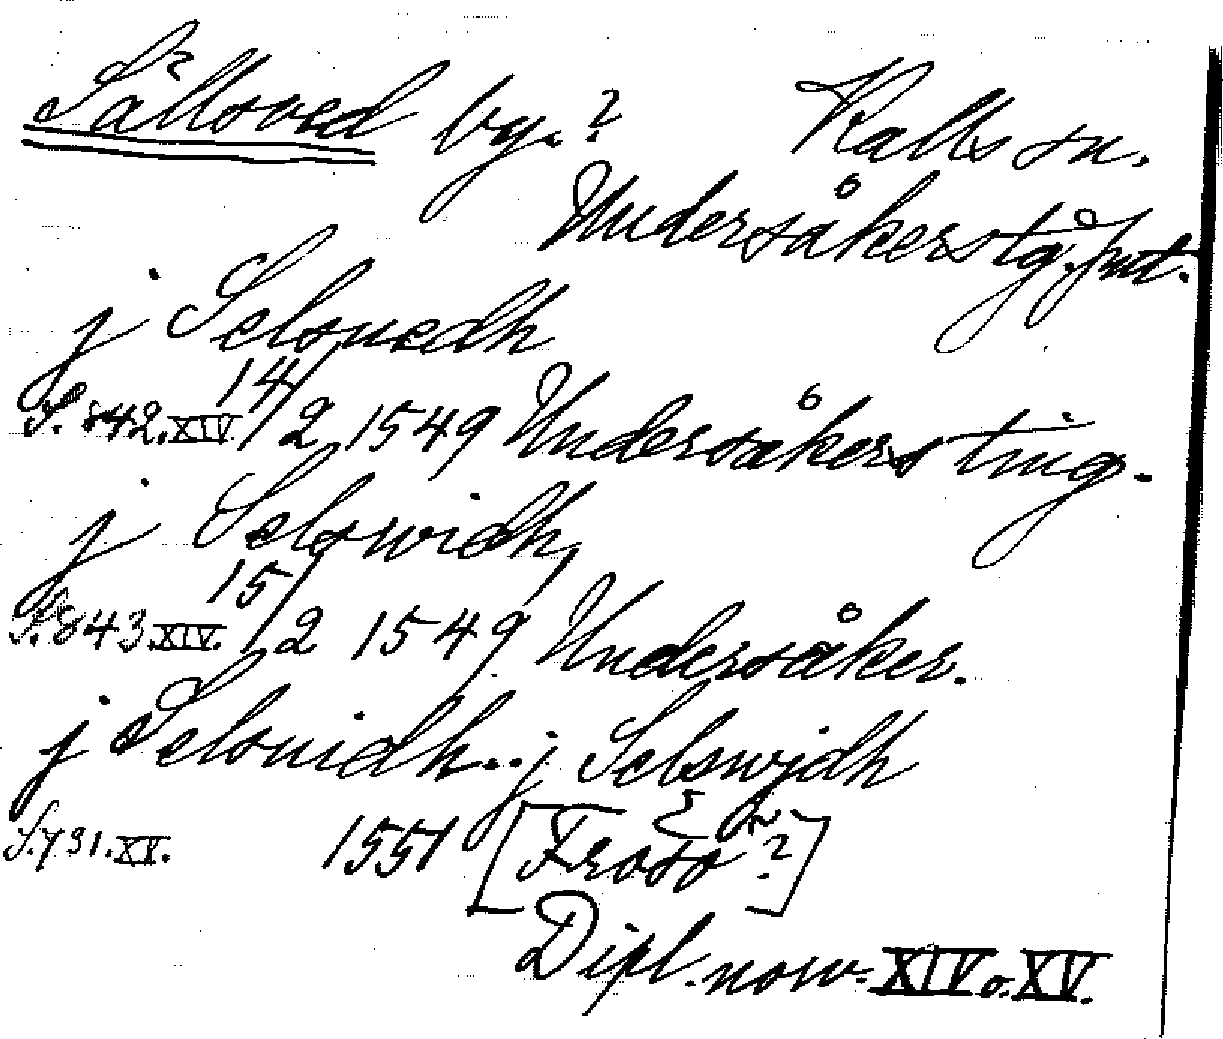 Sällsved by.? Kalls sn.
Undersåkers tg. Jmt.
j Selsuedh
S. 842. XIV 14/2 1549 Undersåkers ting.
j Selswidh,
S. 843. XIV. 15/2 1549 Undersåker.
j Selsuidh.. j Selswjdh
S. 731. XV. 1551 [Frösö?]
Dipl. norv. XIV o. XV.